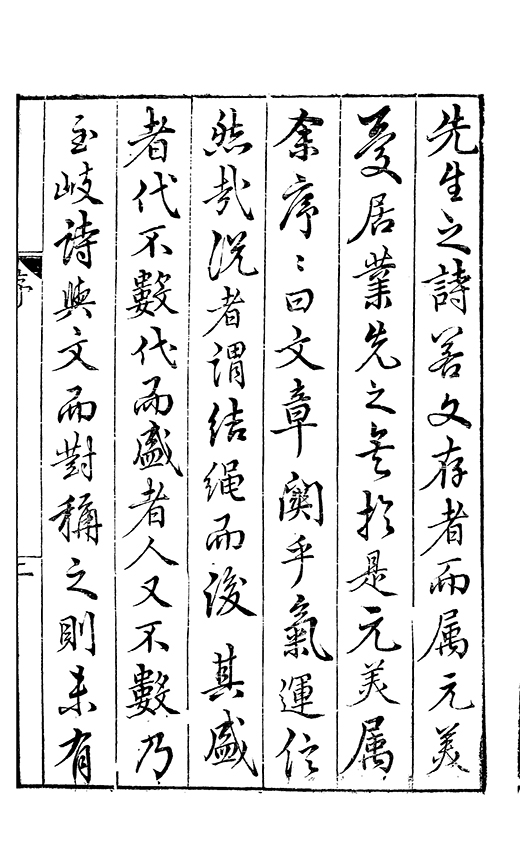 先生之詩若文存者而属元美
憂居業先之矣於是元美属
余序〻曰文章関乎氣運信
然哉況者謂结绳而後其盛
者代不數代而盛者人又不數乃
至岐詩與文而對稱之則未有
序
二